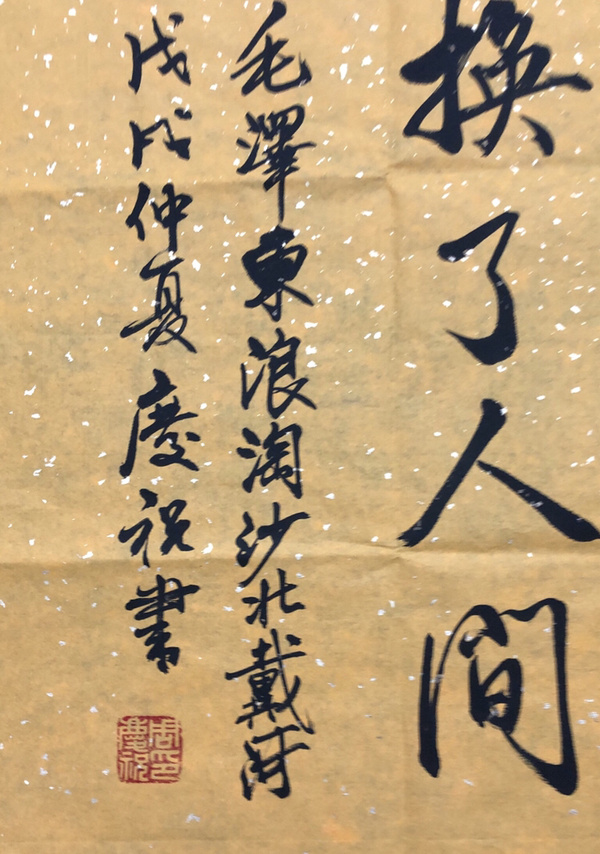 換了人間
毛澤東浪淘沙北戴河
戊戌仲夏慶祝書
周印慶祝